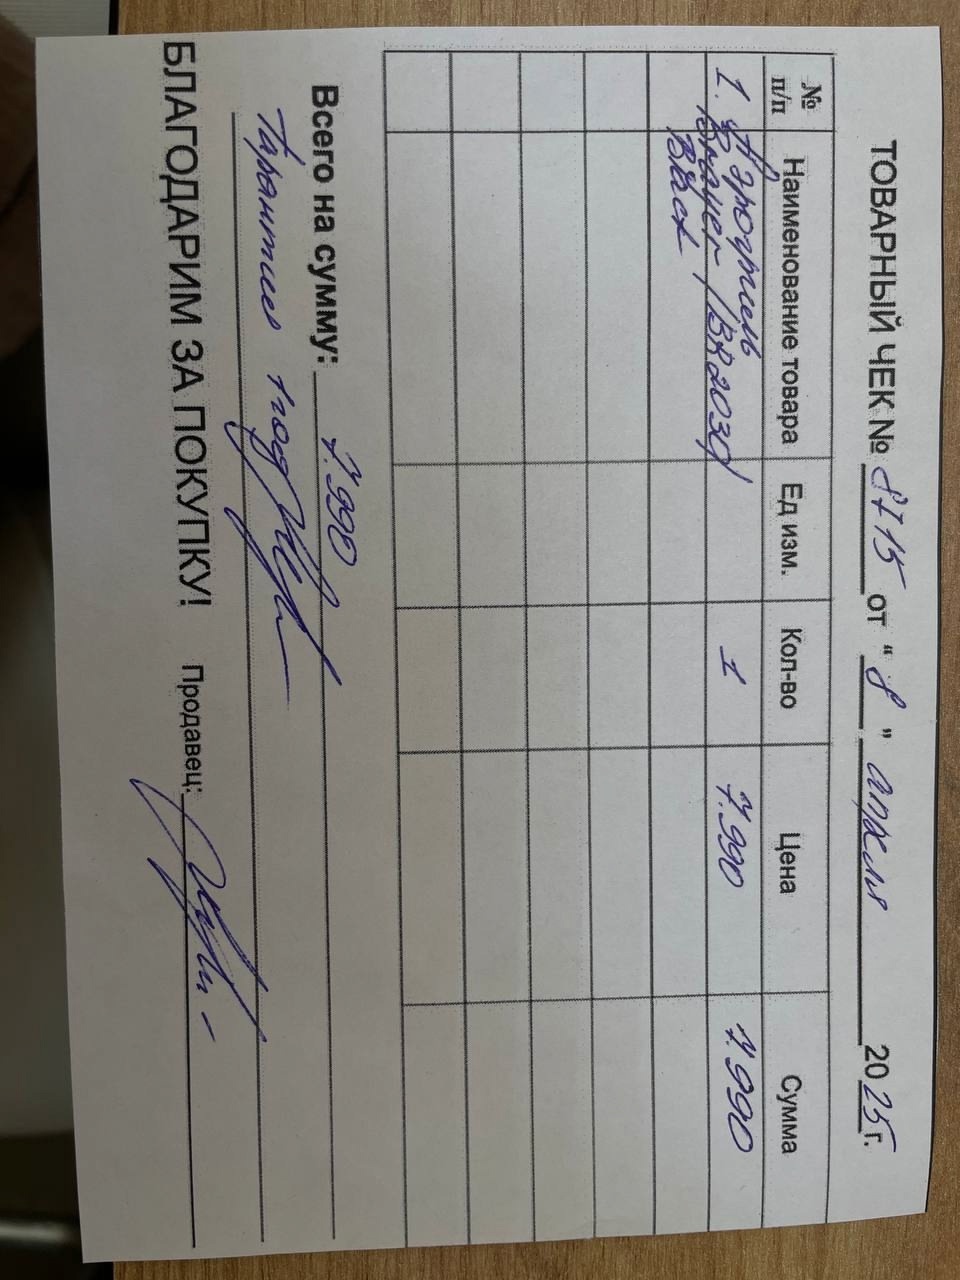 ТОВАРНЫЙ ЧЕК № 8715 от "8" апреля 2025 г.
№ п/п Наименование товара Ед изм. Кол-во Цена Сумма
1. Аэрогриль 1 7.990 7.990
Brayer /BR2030/
Black
Всего на сумму: 7.990
Гарантия 1 год
БЛАГОДАРИМ ЗА ПОКУПКУ! Продавец: